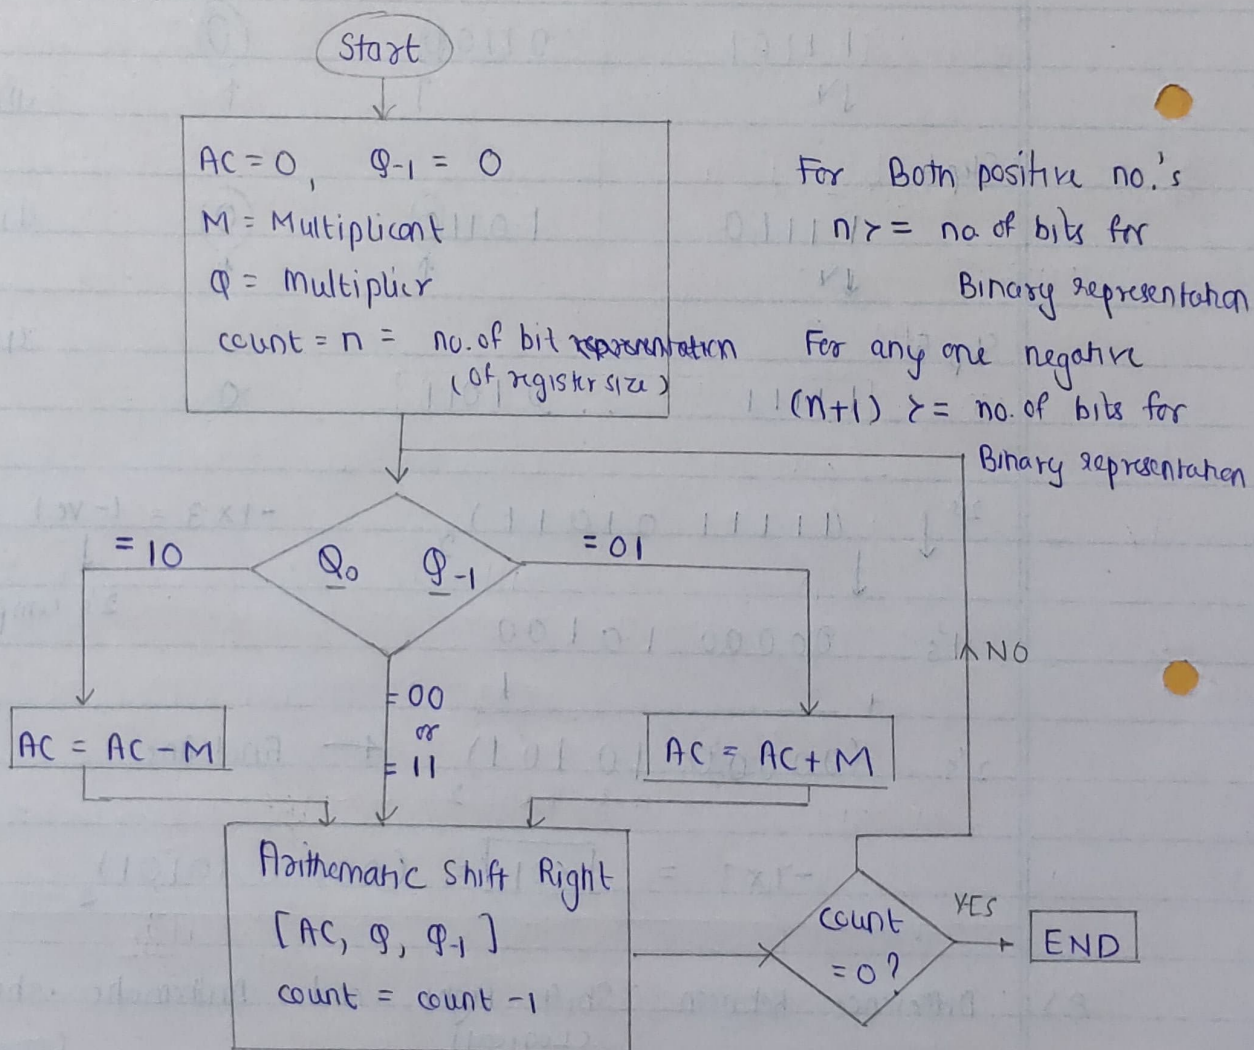 Start
AC = 0, Q-1 = 0
M = Multiplicant
Q = Multiplier
count = n = no. of bit representation
(of register size)
For Both positive no.'s
n/>= no of bits for
Binary representation
For any one negative
(n+1) >= no. of bits for
Binary representation
= 10
Q0 Q-1
= 01
NO
= 00
or
= 11
AC = AC - M
AC = AC + M
Arithematic Shift Right
[AC, Q, Q-1]
count = count - 1
count
= 0?
YES
END